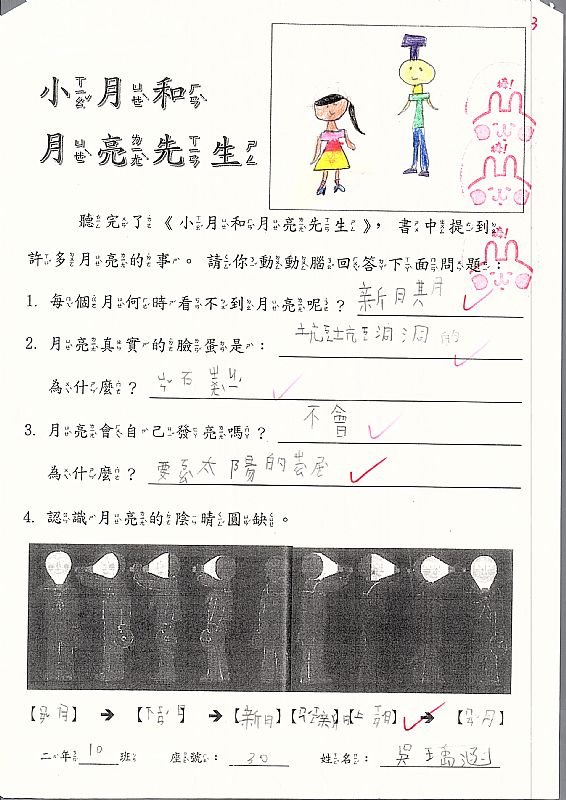 小月和
月亮先生
聽完了《小月和月亮先生》，書中提到
許多月亮的事。請你動動腦回答下面問題：
1. 每個月何時看不到月亮呢？新月其月
2. 月亮真實的臉蛋是：坑坑洞洞的
為什麼？石
3. 月亮會自己發亮嗎？不會
為什麼？要 太陽的
4. 認識月亮的陰晴圓缺。
【 月】→【下 月】→【新月】【 月】【上 月】→【 月】
二年10班 座號：30 姓名：吳